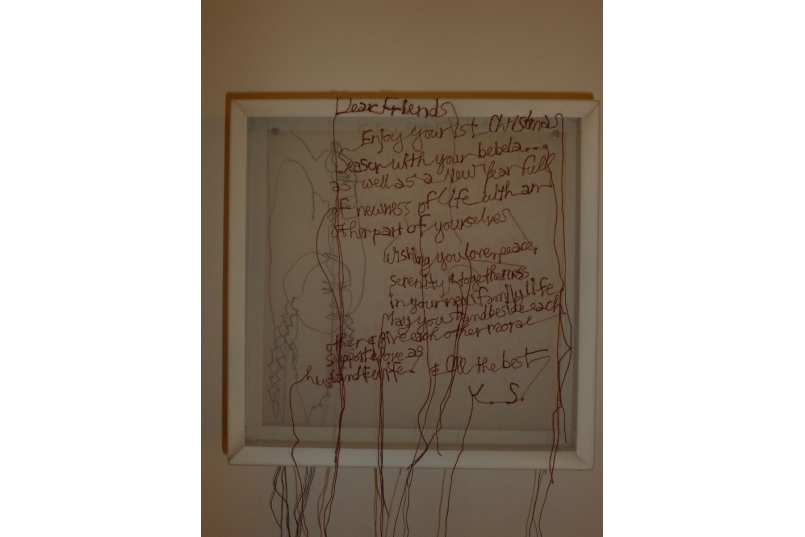 Dear Friends
Enjoy your 1st Christmas
Season with your bebela...
as well as a New Year full
of newness of life with an
other part of yourselves
Wishing you love, peace,
serenity & togetherness
in your new family life
May you stand beside each
other & give each other moral
support & love as
husband & wife. & All the best
Y. S.